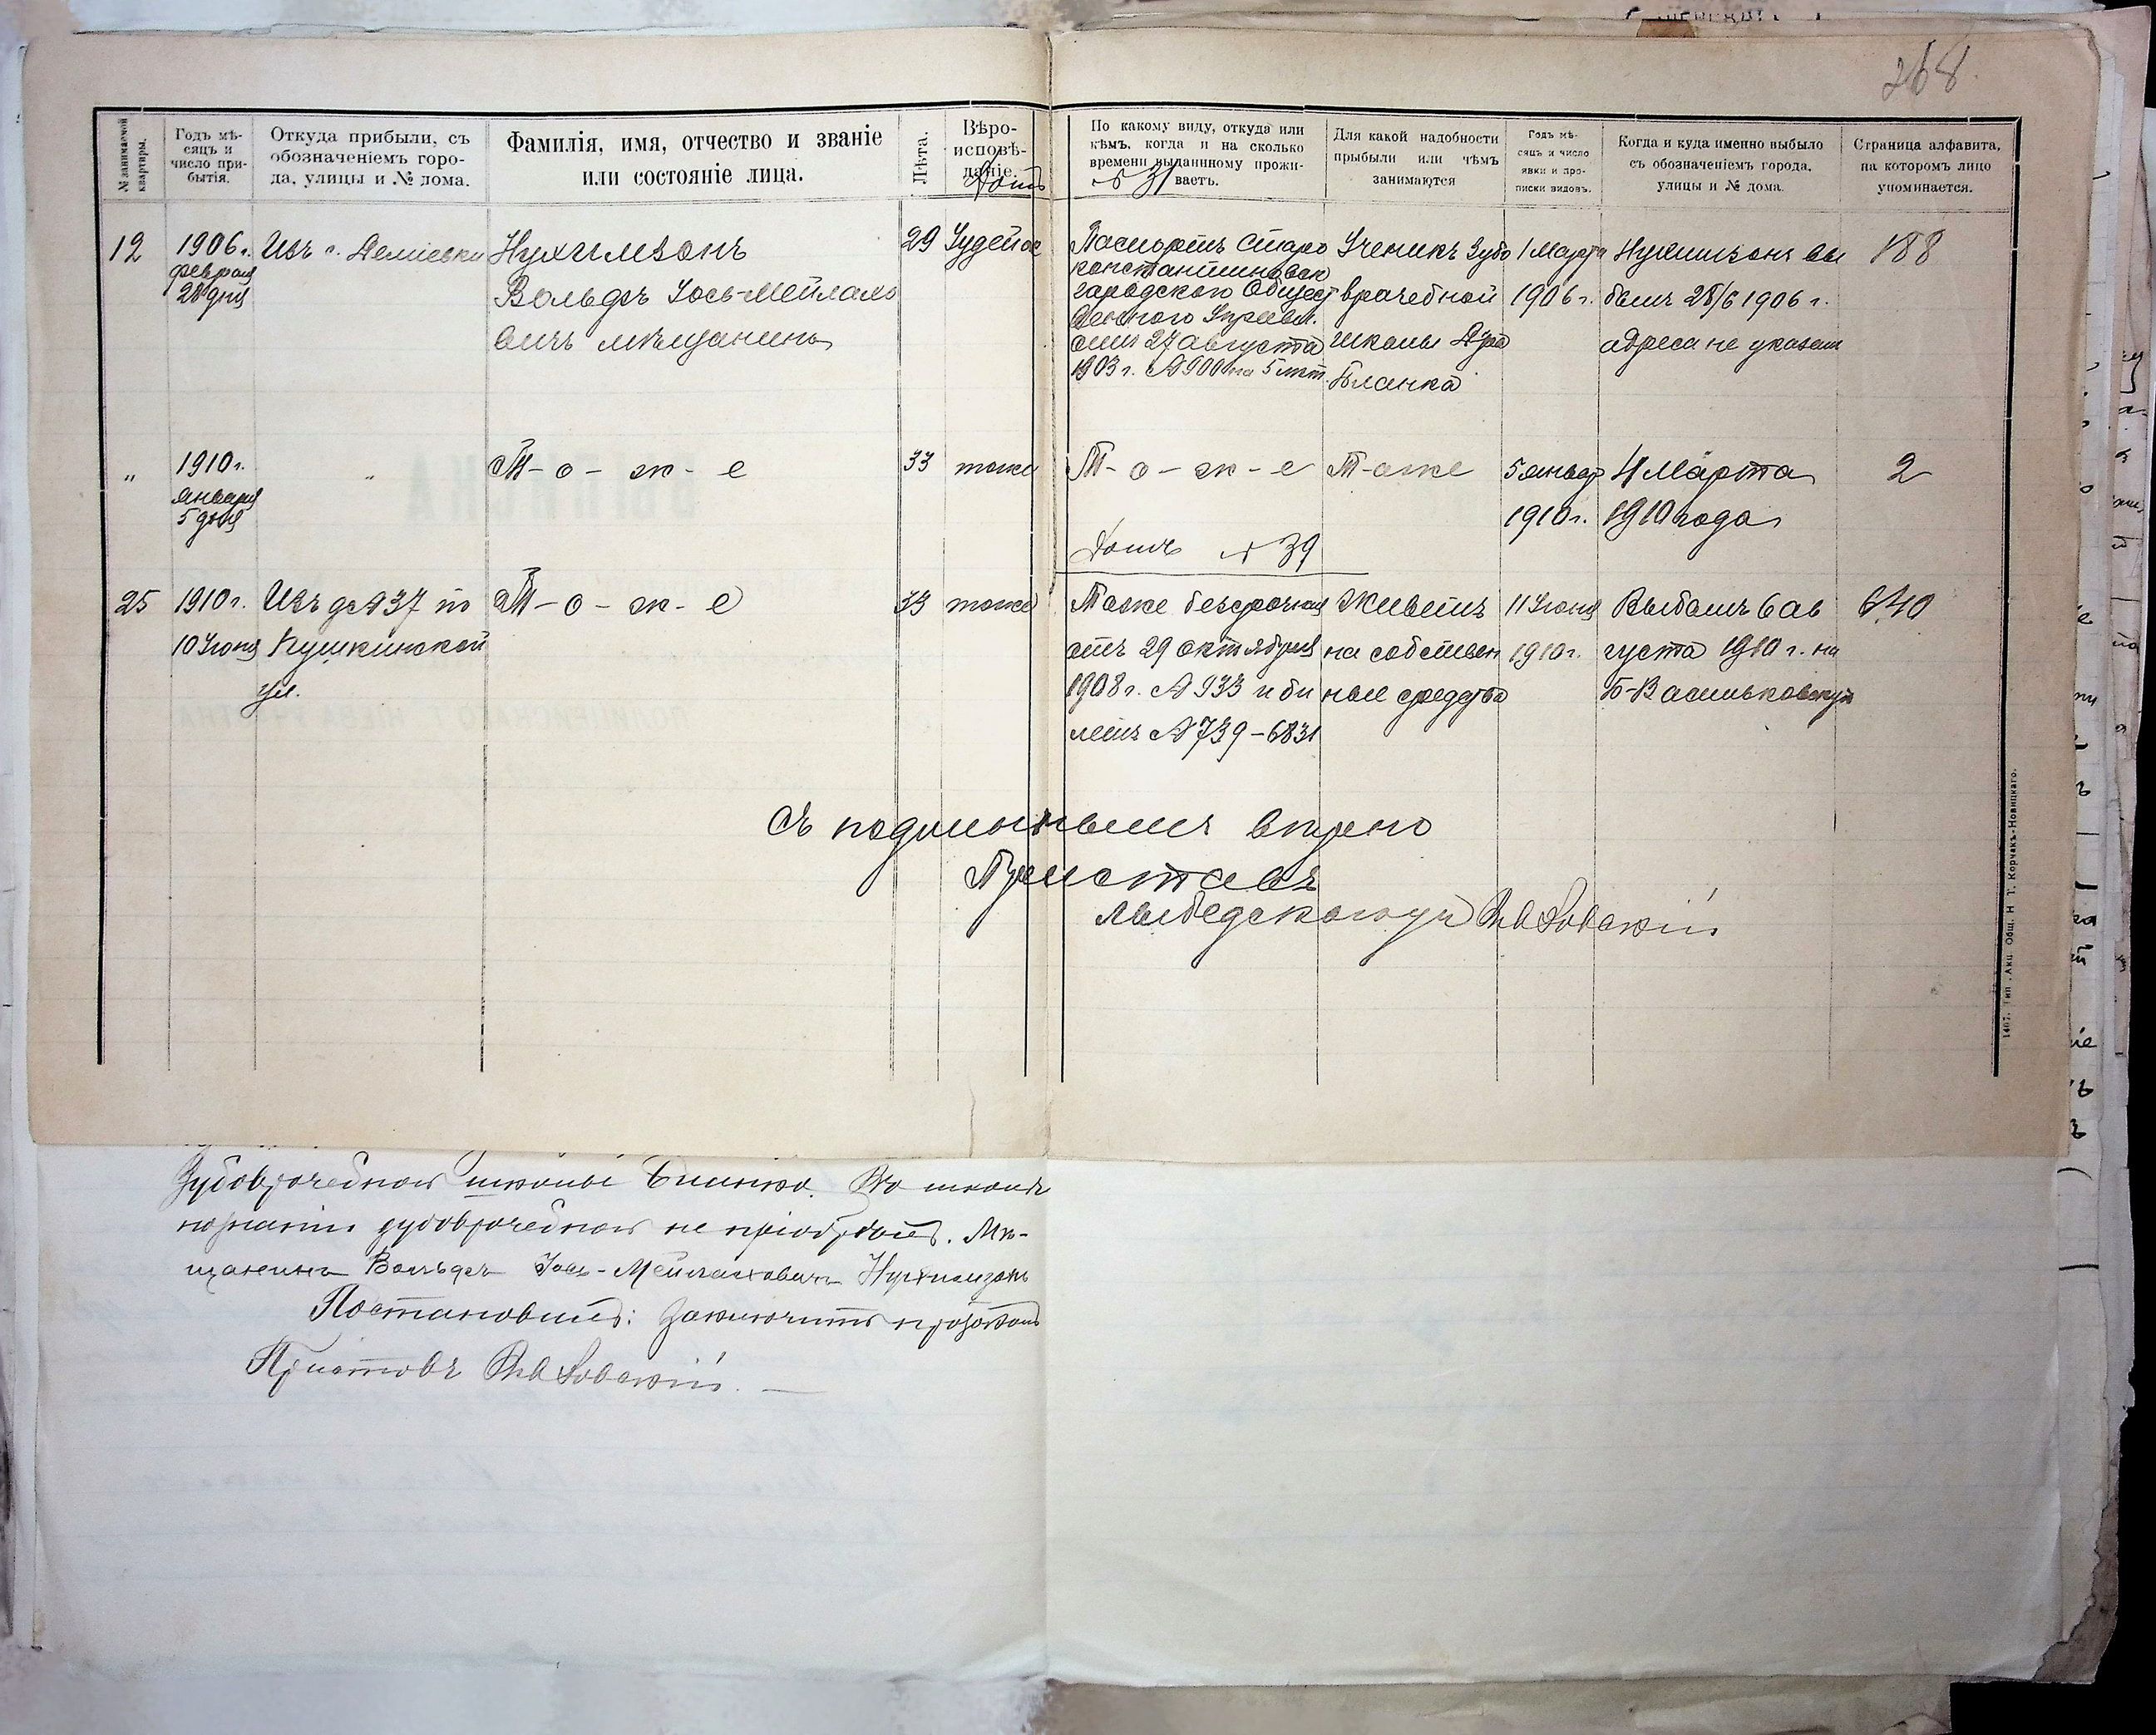 268.
№ занимаемой квартиры.
Годъ мѣ-
сяцъ и
число при-
бытія.
Откуда прибыли, съ
обозначеніемъ горо-
да, улицы и № дома.
Фамилія, имя, отчество и званіе
или состояніе лица.
Лѣта.
Вѣро-
исповѣ-
даніе.
По какому виду, откуда или
кѣмъ, когда и на сколько
времени выданному прожи-
ваетъ.
Для какой надобности
прибыли или чѣмъ
занимаются
Годъ мѣ-
сяцъ и число
явки и про-
писки видовъ.
Когда и куда именно выбыло
съ обозначеніемъ города,
улицы и № дома.
Страница алфавита,
на которомъ лицо
упоминается.
Домъ № 31
12
1906 г.
февраля
28 дня
Изъ с. Деміевки
Нухимзонъ
Вольфъ Іось-Мейлахо
вичъ мѣщанинъ
29
Іудейс
Паспортъ Старо
константиновск
городского Общест
веннаго Управл.
отъ 27 августа
1903 г. № 900 на 5 лѣт.
Ученикъ Зубо
врачебной
школы Д-ра
Бланка
1 Марта
1906 г.
Нухимзонъ вы
былъ 28/6 1906 г.
адреса не указалъ
188
"
1910 г.
января
5 дня
"
Т-о-ж-е
33
тоже
Т-о-ж-е
Тоже
5 январ
1910 г.
4 Марта
1910 года
2
Домъ № 39
25
1910 г.
10 Іюня
Изъ д № 37 по
Пушкинской
ул.
Т-о-ж-е
33
тоже
Тоже безсрочная
отъ 29 октября
1908 г. № 933 и би
летъ № 739-6831
Живетъ
на собствен
ные средства
11 Іюня
1910 г.
Выбылъ 6 ав
густа 1910 г. на
Б-Васильковскую
640
Съ подлиннымъ вѣрно
Приставъ
Лыбедскаго уч
1467. Тип. Акц. Общ. Н. Т. Корчакъ-Новицкаго.
Зубоврачебной школы Бланка. Въ школѣ
познаній зубоврачебной не пріобрѣталъ. Мѣ-
щанинъ Вольфъ Іось-Мейлаховичъ Нухимзонъ
Постановилъ: Заключить протоколъ
Приставъ